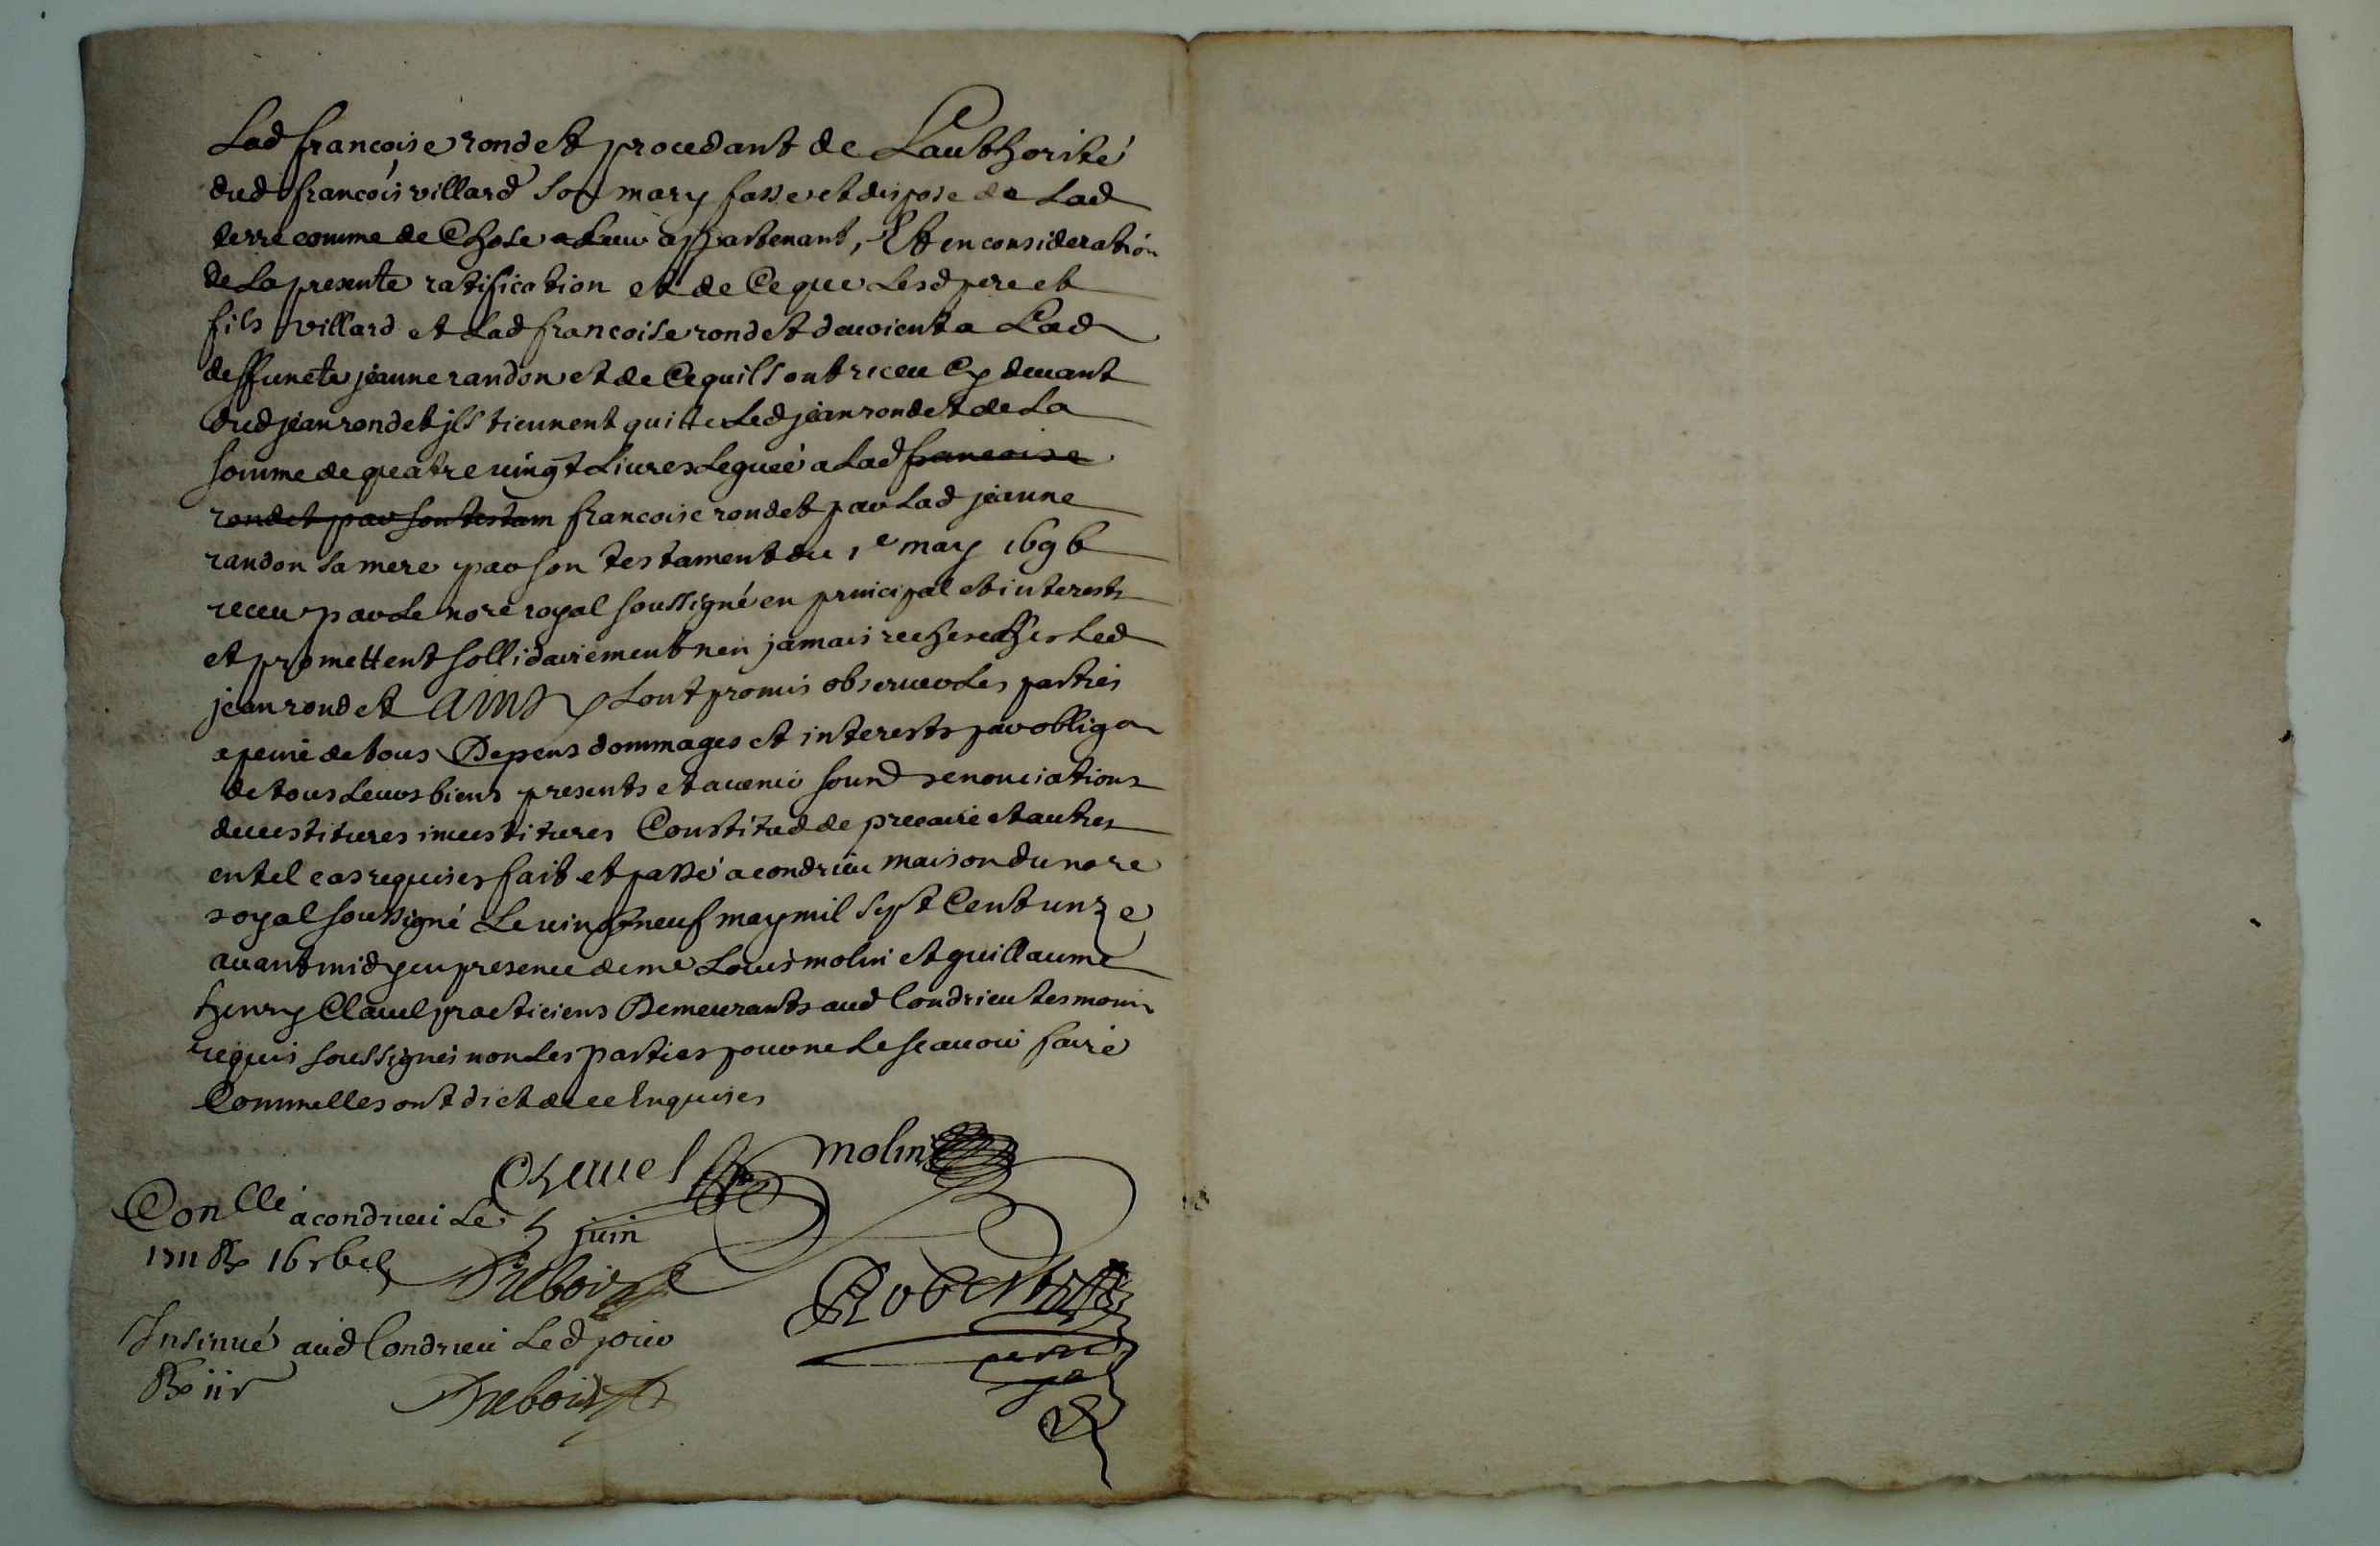 Lad francoise rondet procedant de Lauthorité
dud francois villard son mary fasse et dispose de Lad
terre comme de Chose a Leur appartenant, Et en consideration
de La presente ratification et de Ce que Lesd pere et
fils villard et Lad francoise rondet devoient a Lad
deffuncte jeanne randon et de Ce quils ont receu Cy devant
dud jean rondet jls tiennent quitte Led jean rondet de La
somme de quatre uingt Liures Leguée a Lad francoise
rondet par son testam francoise rondet par Lad jeanne
randon sa mere par son testament du 1e may 1696
receu par Le nore royal soussigné en principal et interests
et promettent sollidairement nen jamais rechercher Led
jean rondet Ainsy Lont promis observer Les parties
a peine de tous Depens dommages et interests par obliga
de tous Leurs biens presents et avenir soumd renonciations
devestitures investitures Constitud de precaire et autres
en tel cas requises fait et passé a condrieu maison du nore
royal soussigné Le vingt neuf may mil sept Cent unze
avant midy en presence de me Louis molin et guillaume
henry Clavel practiciens Demeurants aud Condrieu tesmoins
requis soussignés non Les parties pour ne Le scauoir faire
Comm elles ont dict de ce Enquises
Clavel molin
Conllé a condrieu Le 5 juin
1711 Ro 16 r
Dubois
Insinué aud Condrieu Led jour
Ro 11 r Dubois